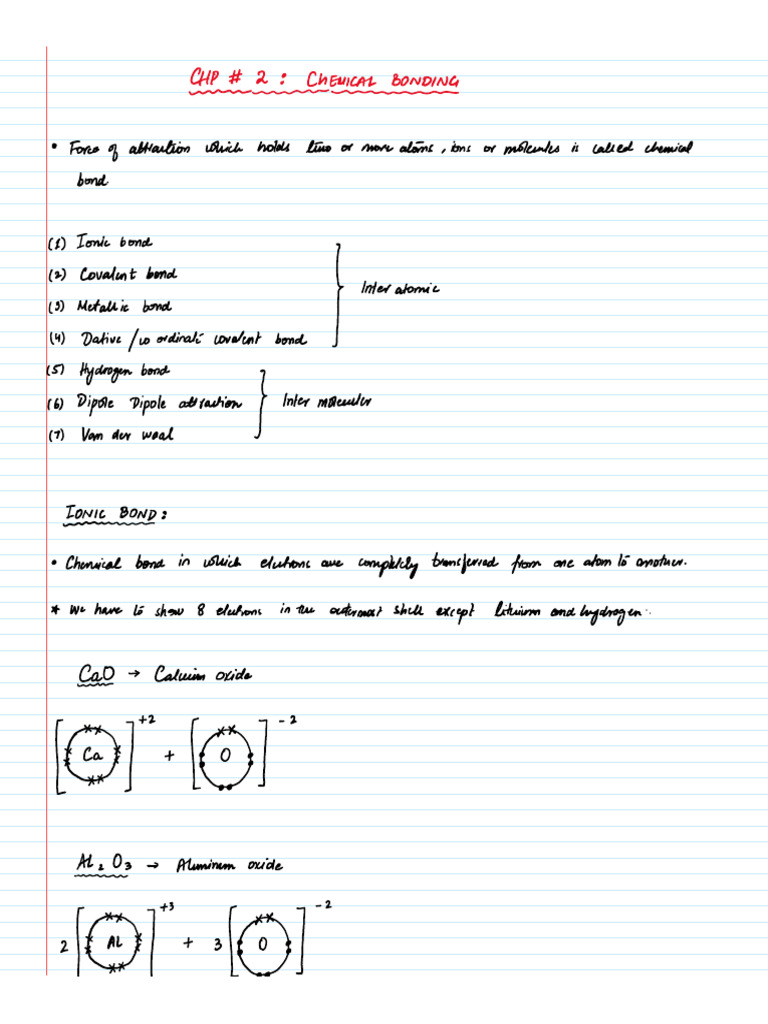 CHP # 2 : CHEMICAL BONDING
• Force of attraction which holds two or more atoms, ions or molecules is called chemical
bond
(1) Ionic bond
(2) Covalent bond
(3) Metallic bond
(4) Dative / co ordinate covalent bond
Inter atomic
(5) Hydrogen bond
(6) Dipole Dipole attraction
(7) Van der waal
Inter molecular
IONIC BOND:
• Chemical bond in which electrons are completely transferred from one atom to another.
* We have to show 8 electrons in the outermost shell except lithium and hydrogen.
CaO → Calcium oxide
[Ca]+2 + [O]-2
AL2O3 → Aluminum oxide
2[AL]+3 + 3[O]-2